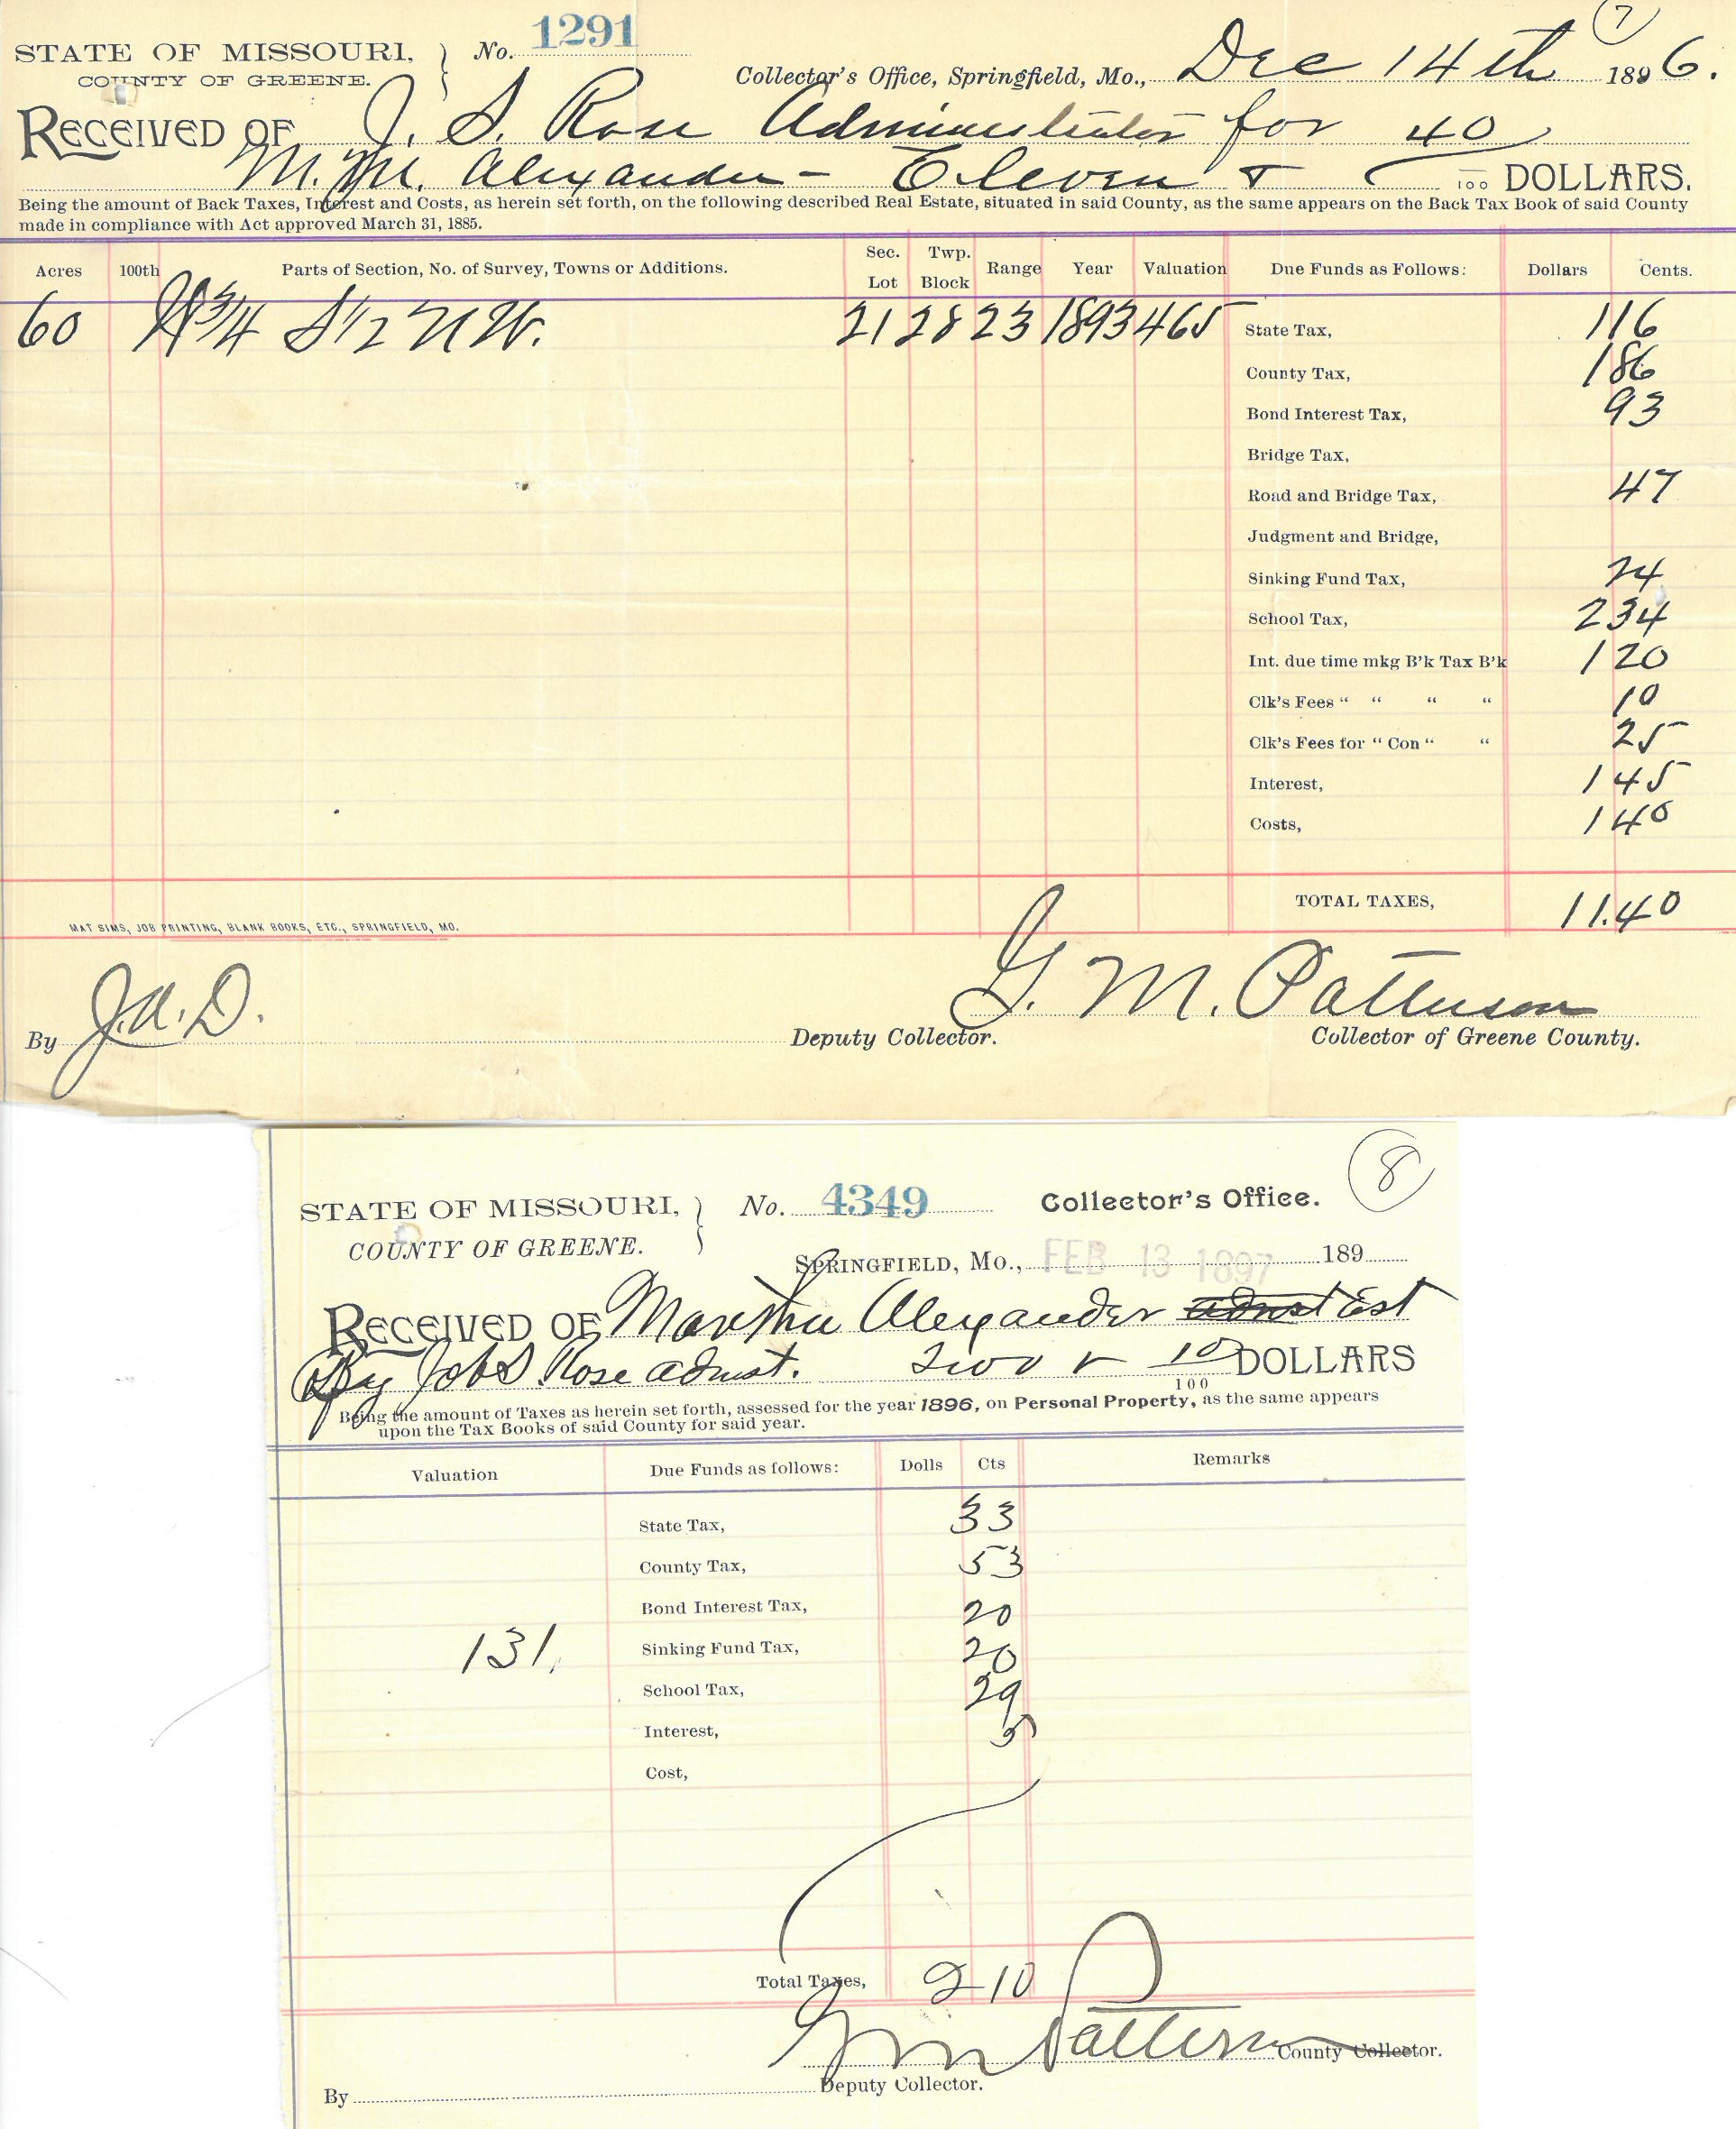 (7)
STATE OF MISSOURI, } No. 1291
COUNTY OF GREENE.
Collector's Office, Springfield, Mo., Dec 14th 1896.
RECEIVED OF J. S. Rose Administrator for 40
M. M. Alexander - Eleven & /100 DOLLARS.
Being the amount of Back Taxes, Interest and Costs, as herein set forth, on the following described Real Estate, situated in said County, as the same appears on the Back Tax Book of said County
made in compliance with Act approved March 31, 1885.
Acres 100th Parts of Section, No. of Survey, Towns or Additions. Sec. Lot Twp. Block Range Year Valuation Due Funds as Follows: Dollars Cents.
60 W 3/4 S 1/2 N W. 21 28 23 1893 465 State Tax, 1 16
County Tax, 1 86
Bond Interest Tax, 93
Bridge Tax,
Road and Bridge Tax, 47
Judgment and Bridge,
Sinking Fund Tax, 24
School Tax, 2 34
Int. due time mkg B'k Tax B'k 1 20
Clk's Fees " " " " 10
Clk's Fees for " Con " " 25
Interest, 1 45
Costs, 1 40
TOTAL TAXES, 11.40
MAT SIMS, JOB PRINTING, BLANK BOOKS, ETC., SPRINGFIELD, MO.
By J.A.D. Deputy Collector. G. M. Patterson Collector of Greene County.
(8)
STATE OF MISSOURI, } No. 4349 Collector's Office.
COUNTY OF GREENE.
SPRINGFIELD, Mo., FEB 13 1897 189
RECEIVED OF Martha Alexander admst Est
By Job S. Rose admst. Two & 10/100 DOLLARS
Being the amount of Taxes as herein set forth, assessed for the year 1896, on Personal Property, as the same appears
upon the Tax Books of said County for said year.
Valuation Due Funds as follows: Dolls Cts Remarks
State Tax, 33
County Tax, 53
Bond Interest Tax, 20
131. Sinking Fund Tax, 20
School Tax, 29
Interest, 5
Cost,
Total Taxes, 2 10
G M Patterson County Collector.
By Deputy Collector.